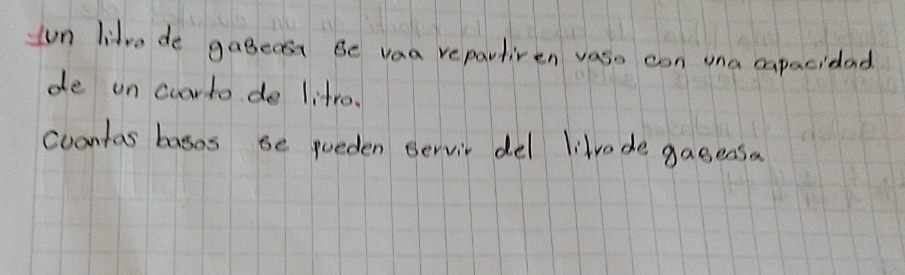 1un litro de gaseosa se vaa repartir en vaso con una capacidad
de un cuarto de litro.
cuantas basos se pueden servir del litro de gaseosa